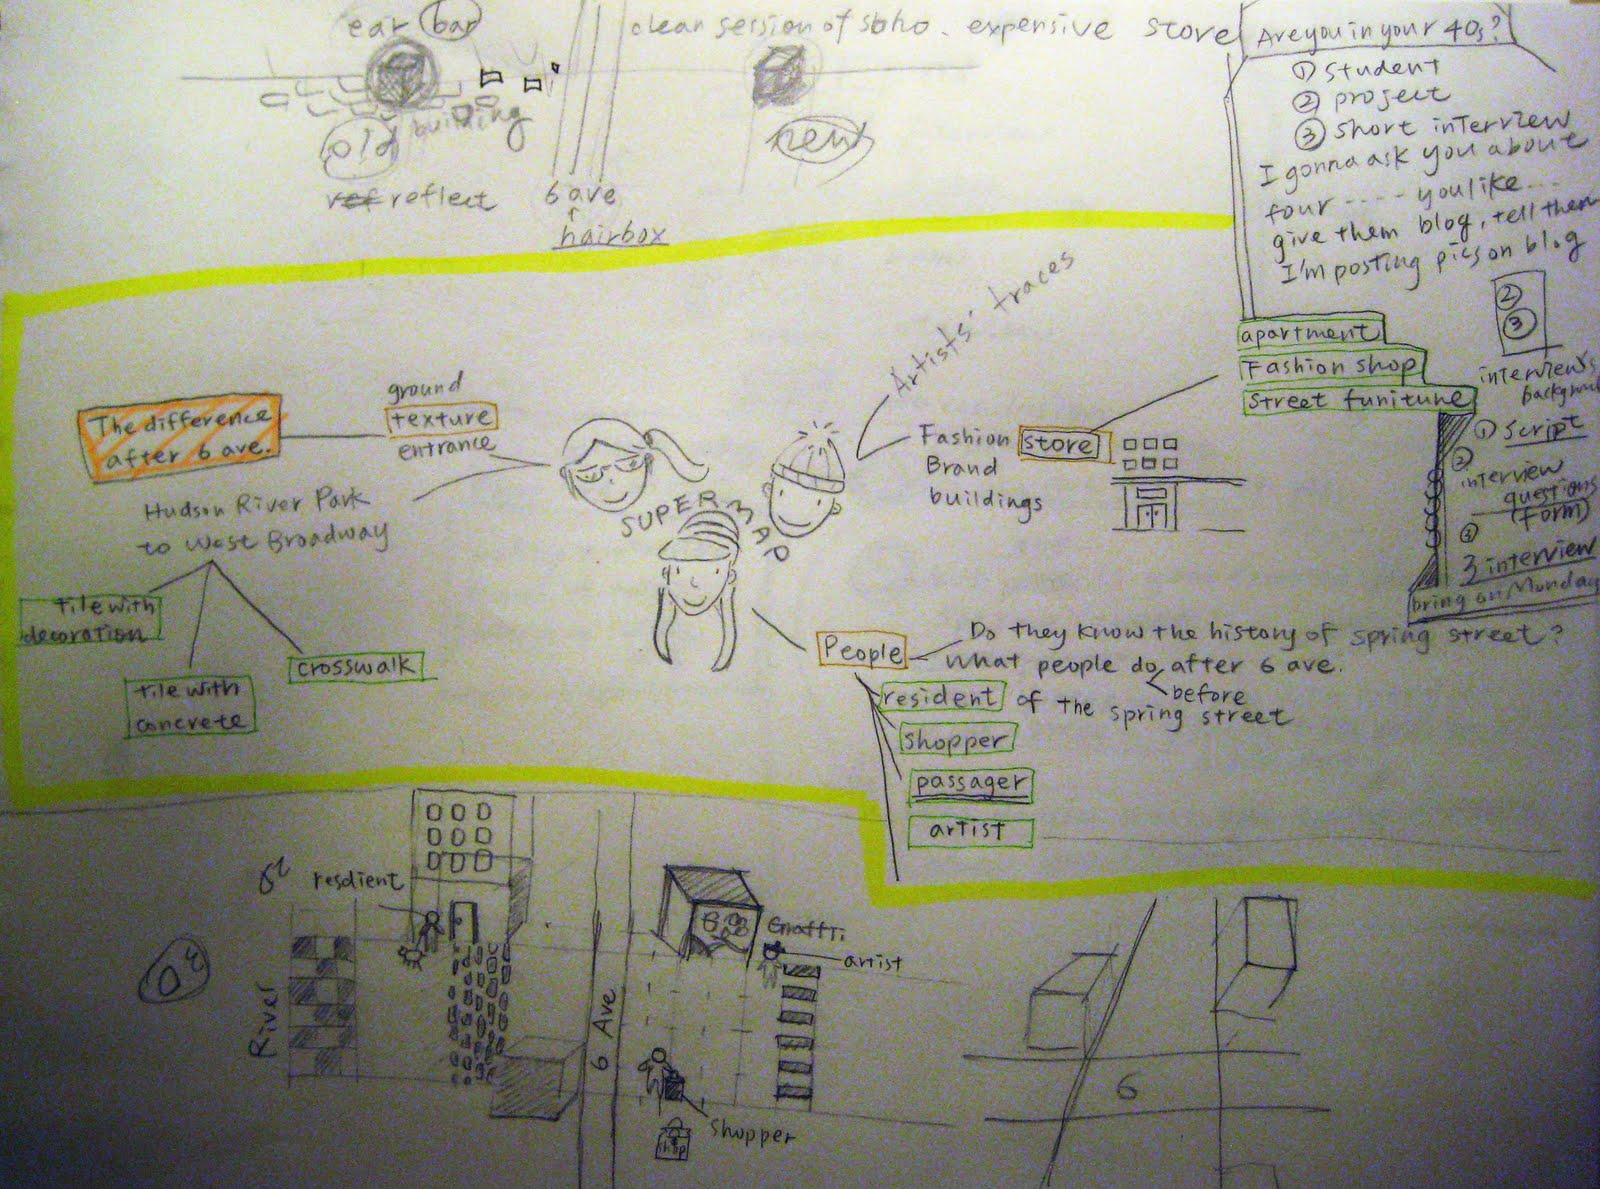 ear bar
clean session of soho. expensive store
old building
new
reflect
6 ave
hairbox
Are you in your 40s?
① student
② project
③ short interview
I gonna ask you about
four ..... you like ...
give them blog, tell them
I'm posting pics on blog
②
③
apartment
Fashion shop
Street funiture
interview's
backgroun
① script
②
interview
questions
(form)
③
3 interview
bring on Monday
The difference
after 6 ave.
ground
texture
entrance
Hudson River Park
to West Broadway
tile with
decoration
tile with
concrete
crosswalk
SUPER MAP
Artists' traces
Fashion
Brand
buildings
store
People
Do they know the history of spring street?
what people do after 6 ave.
before
resident of the spring street
shopper
passager
artist
resdient
River
6 Ave
Graffti
artist
shopper
shop
6